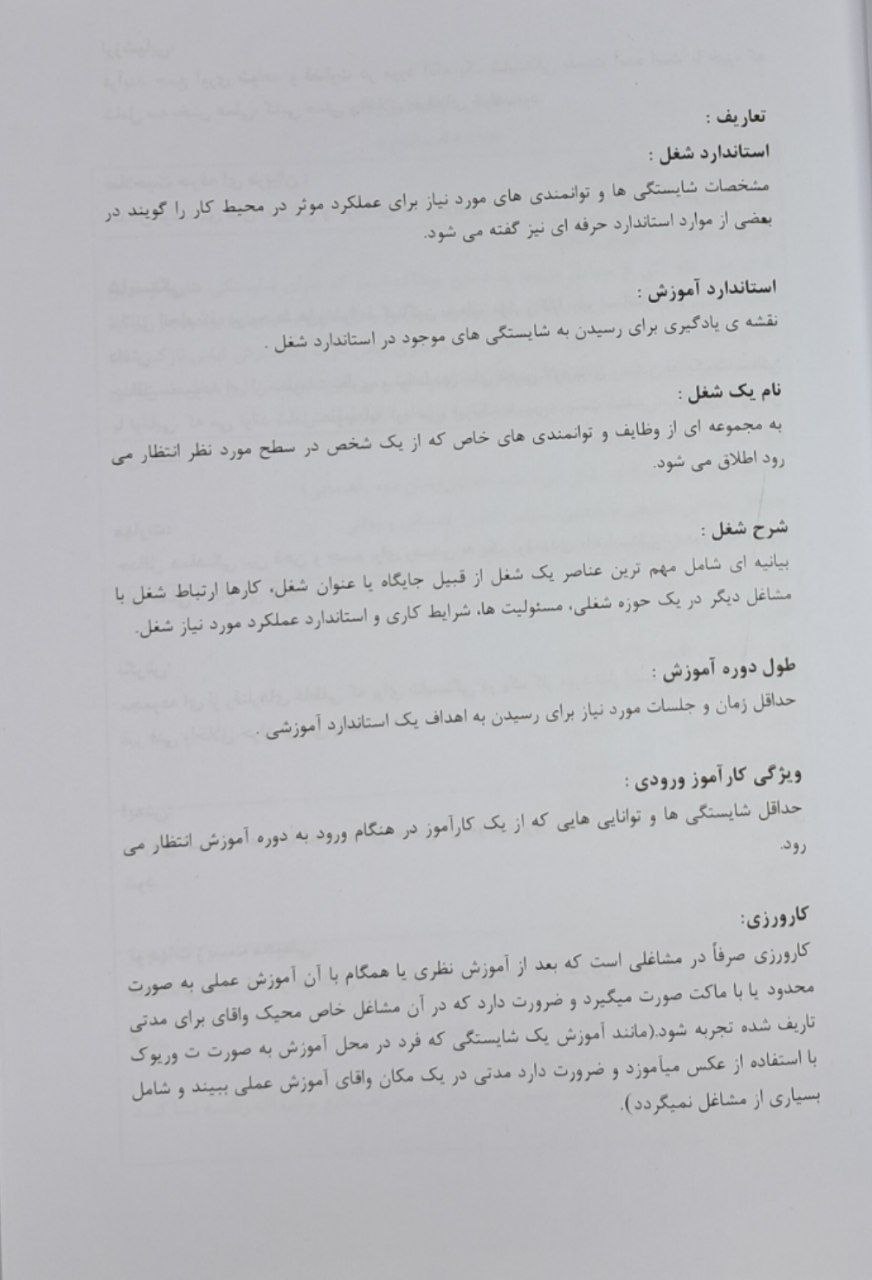 تعاریف :
استاندارد شغل :
مشخصات شایستگی ها و توانمندی های مورد نیاز برای عملکرد موثر در محیط کار را گویند در
بعضی از موارد استاندارد حرفه ای نیز گفته می شود.
استاندارد آموزش :
نقشه ی یادگیری برای رسیدن به شایستگی های موجود در استاندارد شغل .
نام یک شغل :
به مجموعه ای از وظایف و توانمندی های خاص که از یک شخص در سطح مورد نظر انتظار می
رود اطلاق می شود.
شرح شغل :
بیانیه ای شامل مهم ترین عناصر یک شغل از قبیل جایگاه یا عنوان شغل، کارها ارتباط شغل با
مشاغل دیگر در یک حوزه شغلی، مسئولیت ها، شرایط کاری و استاندارد عملکرد مورد نیاز شغل.
طول دوره آموزش :
حداقل زمان و جلسات مورد نیاز برای رسیدن به اهداف یک استاندارد آموزشی .
ویژگی کارآموز ورودی :
حداقل شایستگی ها و توانایی هایی که از یک کارآموز در هنگام ورود به دوره آموزش انتظار می
رود.
کارورزی:
کارورزی صرفاً در مشاغلی است که بعد از آموزش نظری یا همگام با آن آموزش عملی به صورت
محدود یا با ماکت صورت میگیرد و ضرورت دارد که در آن مشاغل خاص محیک واقای برای مدتی
تاریف شده تجربه شود.(مانند آموزش یک شایستگی که فرد در محل آموزش به صورت ت وریوک
با استفاده از عکس میآموزد و ضرورت دارد مدتی در یک مکان واقای آموزش عملی ببیند و شامل
بسیاری از مشاغل نمیگردد).